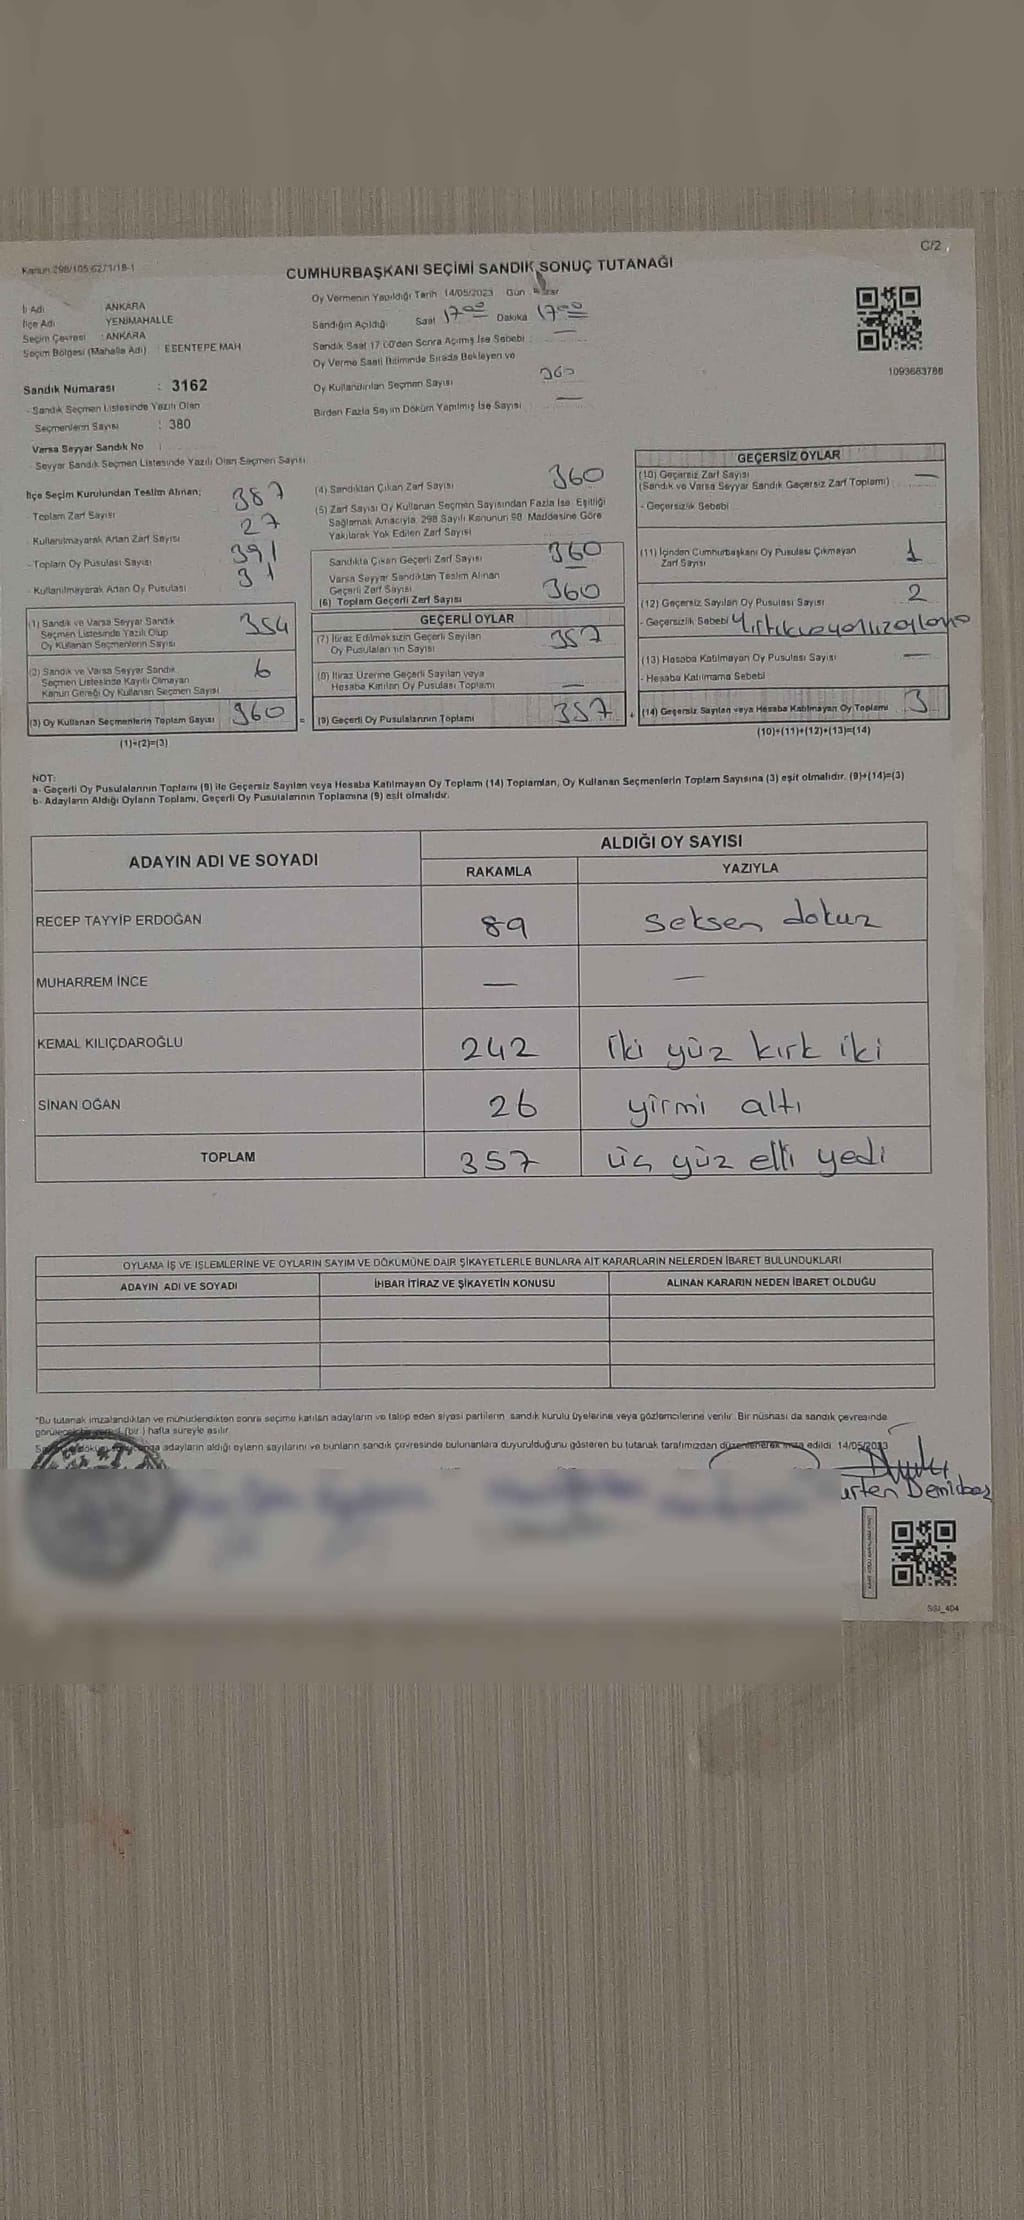 C/2
Kanun:298/105;6271/18-1
CUMHURBAŞKANI SEÇİMİ SANDIK SONUÇ TUTANAĞI
İl Adı ANKARA
İlçe Adı YENİMAHALLE
Seçim Çevresi : ANKARA
Seçim Bölgesi (Mahalle Adı) : ESENTEPE MAH
Sandık Numarası : 3162
- Sandık Seçmen Listesinde Yazılı Olan
Seçmenlerin Sayısı : 380
Varsa Seyyar Sandık No :
- Seyyar Sandık Seçmen Listesinde Yazılı Olan Seçmen Sayısı
Oy Vermenin Yapıldığı Tarih : 14/05/2023 Gün :
Sandığın Açıldığı Saat 17 00 Dakika 17 00
Sandık Saat 17.00'den Sonra Açılmış İse Sebebi : —
Oy Verme Saati Bitiminde Sırada Bekleyen ve
Oy Kullandırılan Seçmen Sayısı 360
Birden Fazla Sayım Döküm Yapılmış İse Sayısı —
1093683788
İlçe Seçim Kurulundan Teslim Alınan;
- Toplam Zarf Sayısı 387
- Kullanılmayarak Artan Zarf Sayısı 27
- Toplam Oy Pusulası Sayısı 391
- Kullanılmayarak Artan Oy Pusulası 31
(1) Sandık ve Varsa Seyyar Sandık
Seçmen Listesinde Yazılı Olup
Oy Kullanan Seçmenlerin Sayısı 354
(2) Sandık ve Varsa Seyyar Sandık
Seçmen Listesinde Kayıtlı Olmayan
Kanun Gereği Oy Kullanan Seçmen Sayısı 6
(3) Oy Kullanan Seçmenlerin Toplam Sayısı 360 =
(1)+(2)=(3)
(4) Sandıktan Çıkan Zarf Sayısı 360
(5) Zarf Sayısı Oy Kullanan Seçmen Sayısından Fazla İse; Eşitliği
Sağlamak Amacıyla, 298 Sayılı Kanunun 98. Maddesine Göre
Yakılarak Yok Edilen Zarf Sayısı —
Sandıkta Çıkan Geçerli Zarf Sayısı 360
Varsa Seyyar Sandıktan Teslim Alınan
Geçerli Zarf Sayısı —
(6) Toplam Geçerli Zarf Sayısı 360
GEÇERLİ OYLAR
(7) İtiraz Edilmeksizin Geçerli Sayılan
Oy Pusulaları'nın Sayısı 357
(8) İtiraz Üzerine Geçerli Sayılan veya
Hesaba Katılan Oy Pusulası Toplamı —
(9) Geçerli Oy Pusulalarının Toplamı 357 +
GEÇERSİZ OYLAR
(10) Geçersiz Zarf Sayısı —
(Sandık ve Varsa Seyyar Sandık Geçersiz Zarf Toplamı)
- Geçersizlik Sebebi
(11) İçinden Cumhurbaşkanı Oy Pusulası Çıkmayan
Zarf Sayısı 1
(12) Geçersiz Sayılan Oy Pusulası Sayısı 2
- Geçersizlik Sebebi
(13) Hesaba Katılmayan Oy Pusulası Sayısı —
- Hesaba Katılmama Sebebi
(14) Geçersiz Sayılan veya Hesaba Katılmayan Oy Toplamı 3
(10)+(11)+(12)+(13)=(14)
NOT:
a- Geçerli Oy Pusulalarının Toplamı (9) ile Geçersiz Sayılan veya Hesaba Katılmayan Oy Toplamı (14) Toplamları, Oy Kullanan Seçmenlerin Toplam Sayısına (3) eşit olmalıdır. (9)+(14)=(3)
b- Adayların Aldığı Oyların Toplamı, Geçerli Oy Pusulalarının Toplamına (9) eşit olmalıdır.
ADAYIN ADI VE SOYADI ALDIĞI OY SAYISI
RAKAMLA YAZIYLA
RECEP TAYYİP ERDOĞAN 89 seksen dokuz
MUHARREM İNCE — —
KEMAL KILIÇDAROĞLU 242 iki yüz kırk iki
SİNAN OĞAN 26 yirmi altı
TOPLAM 357 üç yüz elli yedi
OYLAMA İŞ VE İŞLEMLERİNE VE OYLARIN SAYIM VE DÖKÜMÜNE DAİR ŞİKAYETLERLE BUNLARA AİT KARARLARIN NELERDEN İBARET BULUNDUKLARI
ADAYIN ADI VE SOYADI İHBAR İTİRAZ VE ŞİKAYETİN KONUSU ALINAN KARARIN NEDEN İBARET OLDUĞU
"Bu tutanak imzalandıktan ve mühürlendikten sonra seçime katılan adayların ve talep eden siyasi partilerin sandık kurulu üyelerine veya gözlemcilerine verilir. Bir nüshası da sandık çevresinde
(bir) hafta süreyle asılır.
adayların aldığı oyların sayılarını ve bunların sandık çevresinde bulunanlara duyurulduğunu gösteren bu tutanak tarafımızdan düzenlenerek imza edildi. 14/05/2023
SGI_404